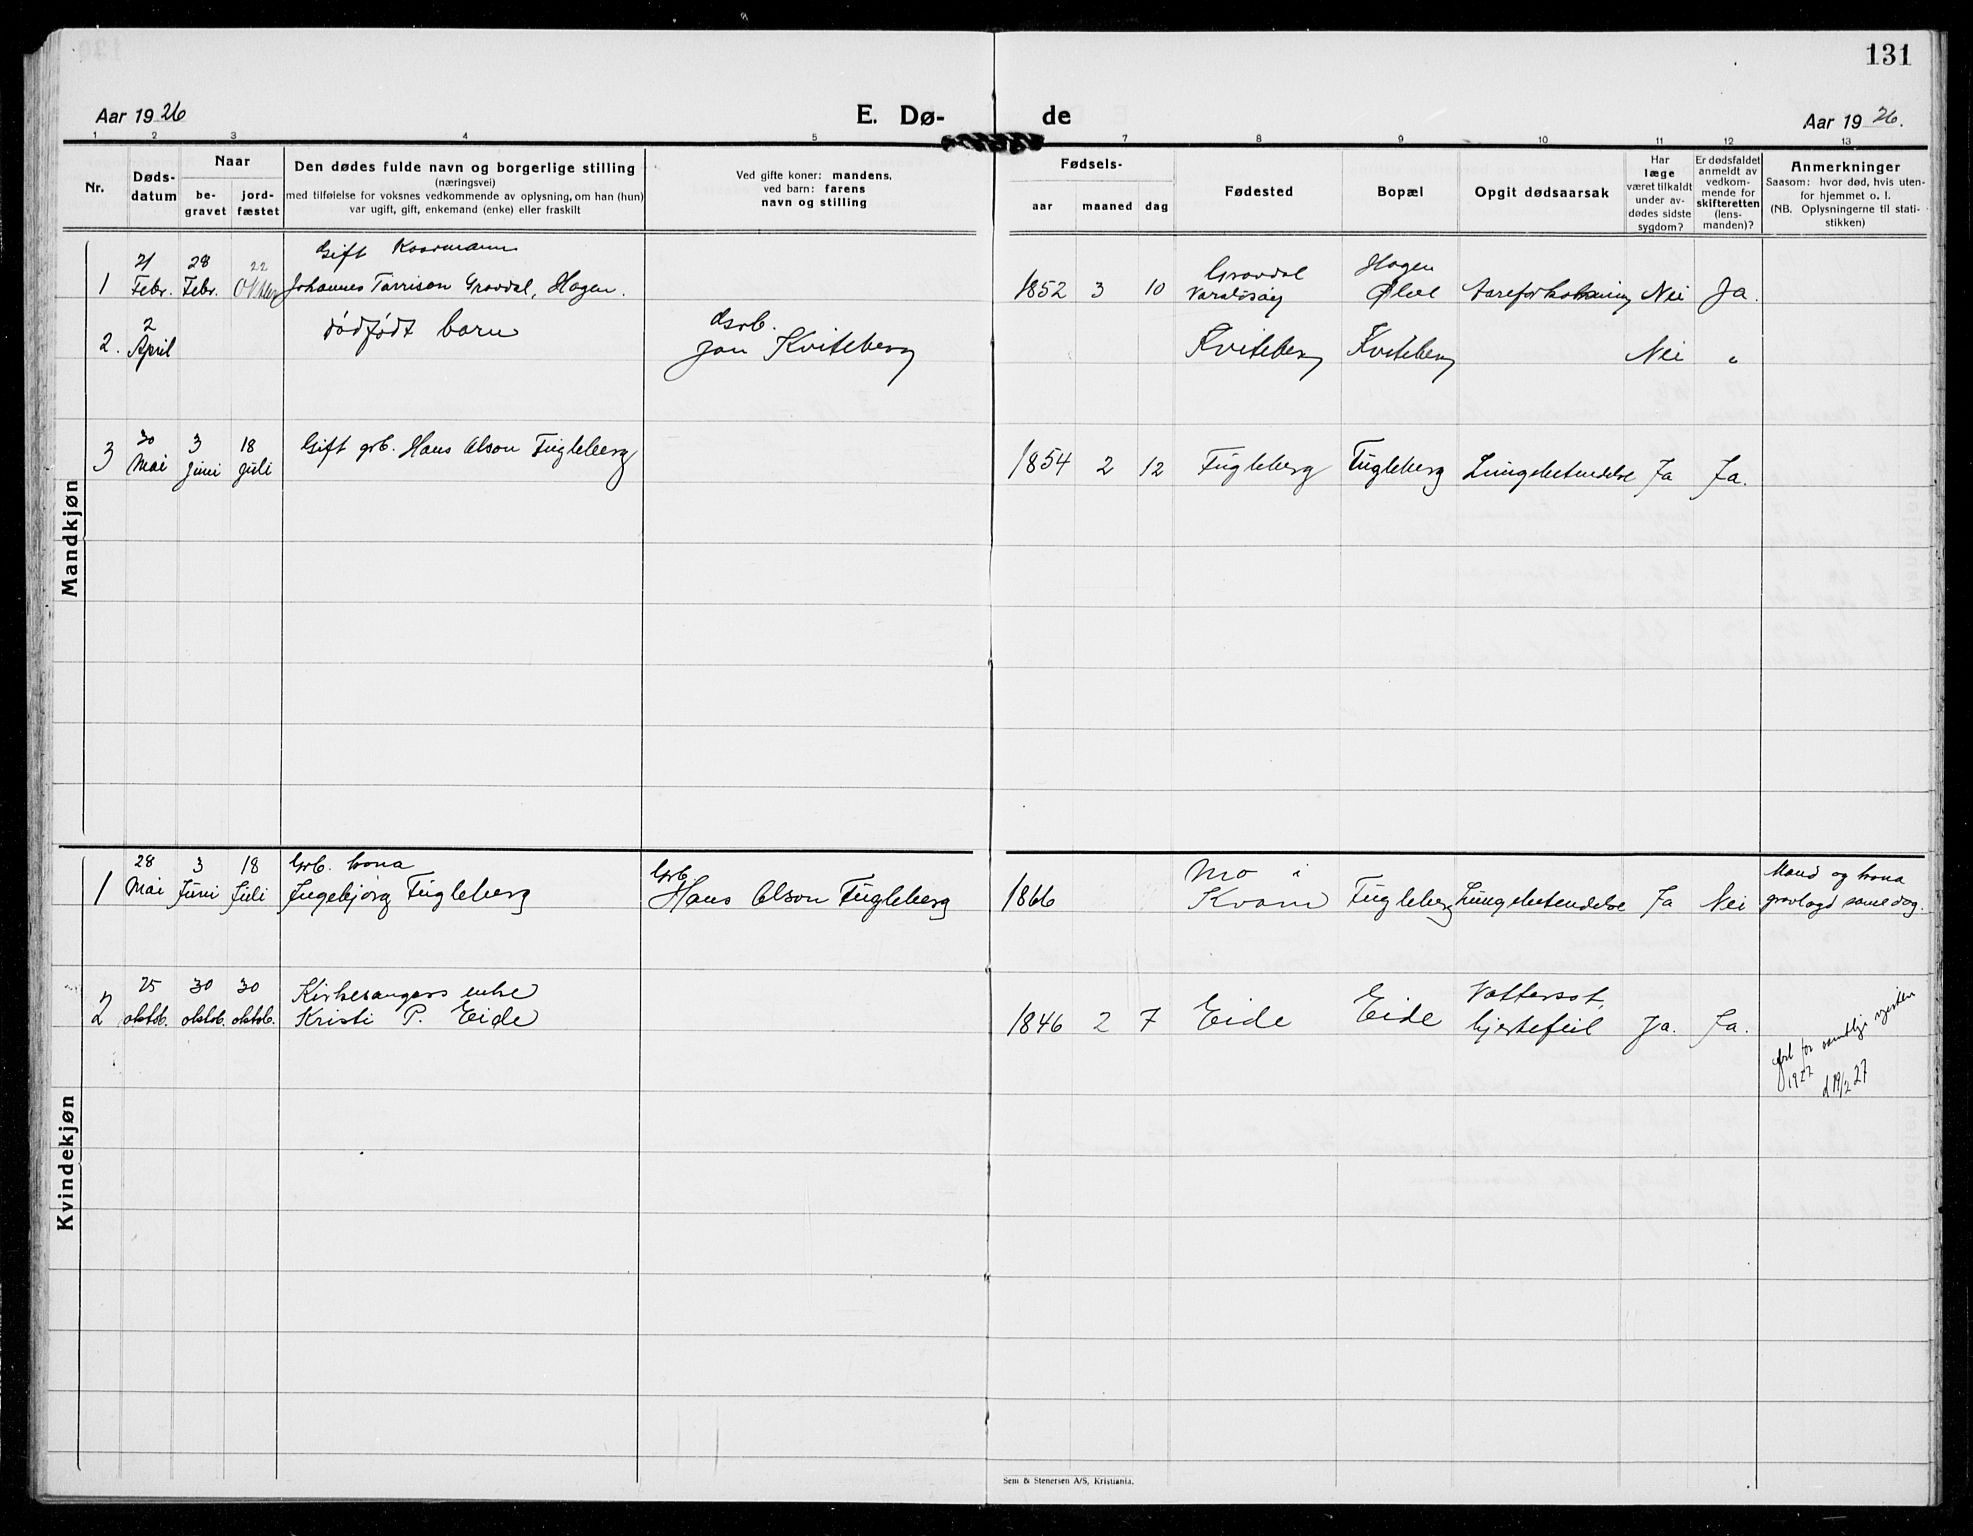 131
Aar 1926
E. Dø-
de
Aar 1926.
1 2 3 4 5 7 8 9 10 11 12 13
Nr.
Døds-
datum
Naar
be-
gravet
jord-
fæstet
Den dødes fulde navn og borgerlige stilling
(næringsvei)
med tilføielse for voksnes vedkommende av oplysning, om han (hun)
var ugift, gift, enkemand (enke) eller fraskilt
Ved gifte koner: mandens,
ved barn: farens
navn og stilling
Fødsels-
aar maaned dag
Fødested
Bopæl
Opgit dødsaarsak
Har
læge
været tilkaldt
under av-
dødes sidste
sygdom?
Er dødsfaldet
anmeldt av
vedkom-
mende for
skifteretten
(lens-
manden)?
Anmerkninger
Saasom: hvor død, hvis uten-
for hjemmet o. l.
(NB. Oplysningerne til stati-
stikken)
Mandkjøn
21 28 22 Gift Kaarmann Gravdal Hagen
1 Febr. Febr. Johannes Tarrison Gravdal, Hagen. 1852 3 10 Varaldsøy Ølve Aareforkalkning Nei Ja.
2 dødfødt barn Gsrb.
2. April Jon Kviteberg Kviteberg Kviteberg Nei "
30 3 18
3 Mai Juni Juli Gift grb. Hans Olson Fugleberg 1854 2 12 Fugleberg Fugleberg Lungebetendelse Ja Ja.
Kvindekjøn
28 3 18 Grb. kona Grb. Mo i Mand og kona
1 Mai Juni Juli Ingebjørg Fugleberg Hans Olson Fugleberg 1866 Kvam Fugleberg Lungebetendelse Ja Nei gravlagd same dag.
25 30 30 Kirkesangers enke Vattersot,
2 oktob. oktob. oktob. Kristi P. Eide 1846 2 7 Eide Eide hjertefeil Ja. Ja.
for samtlige
1927
d 19/2 27
Sem & Stenersen A/S, Kristiania.